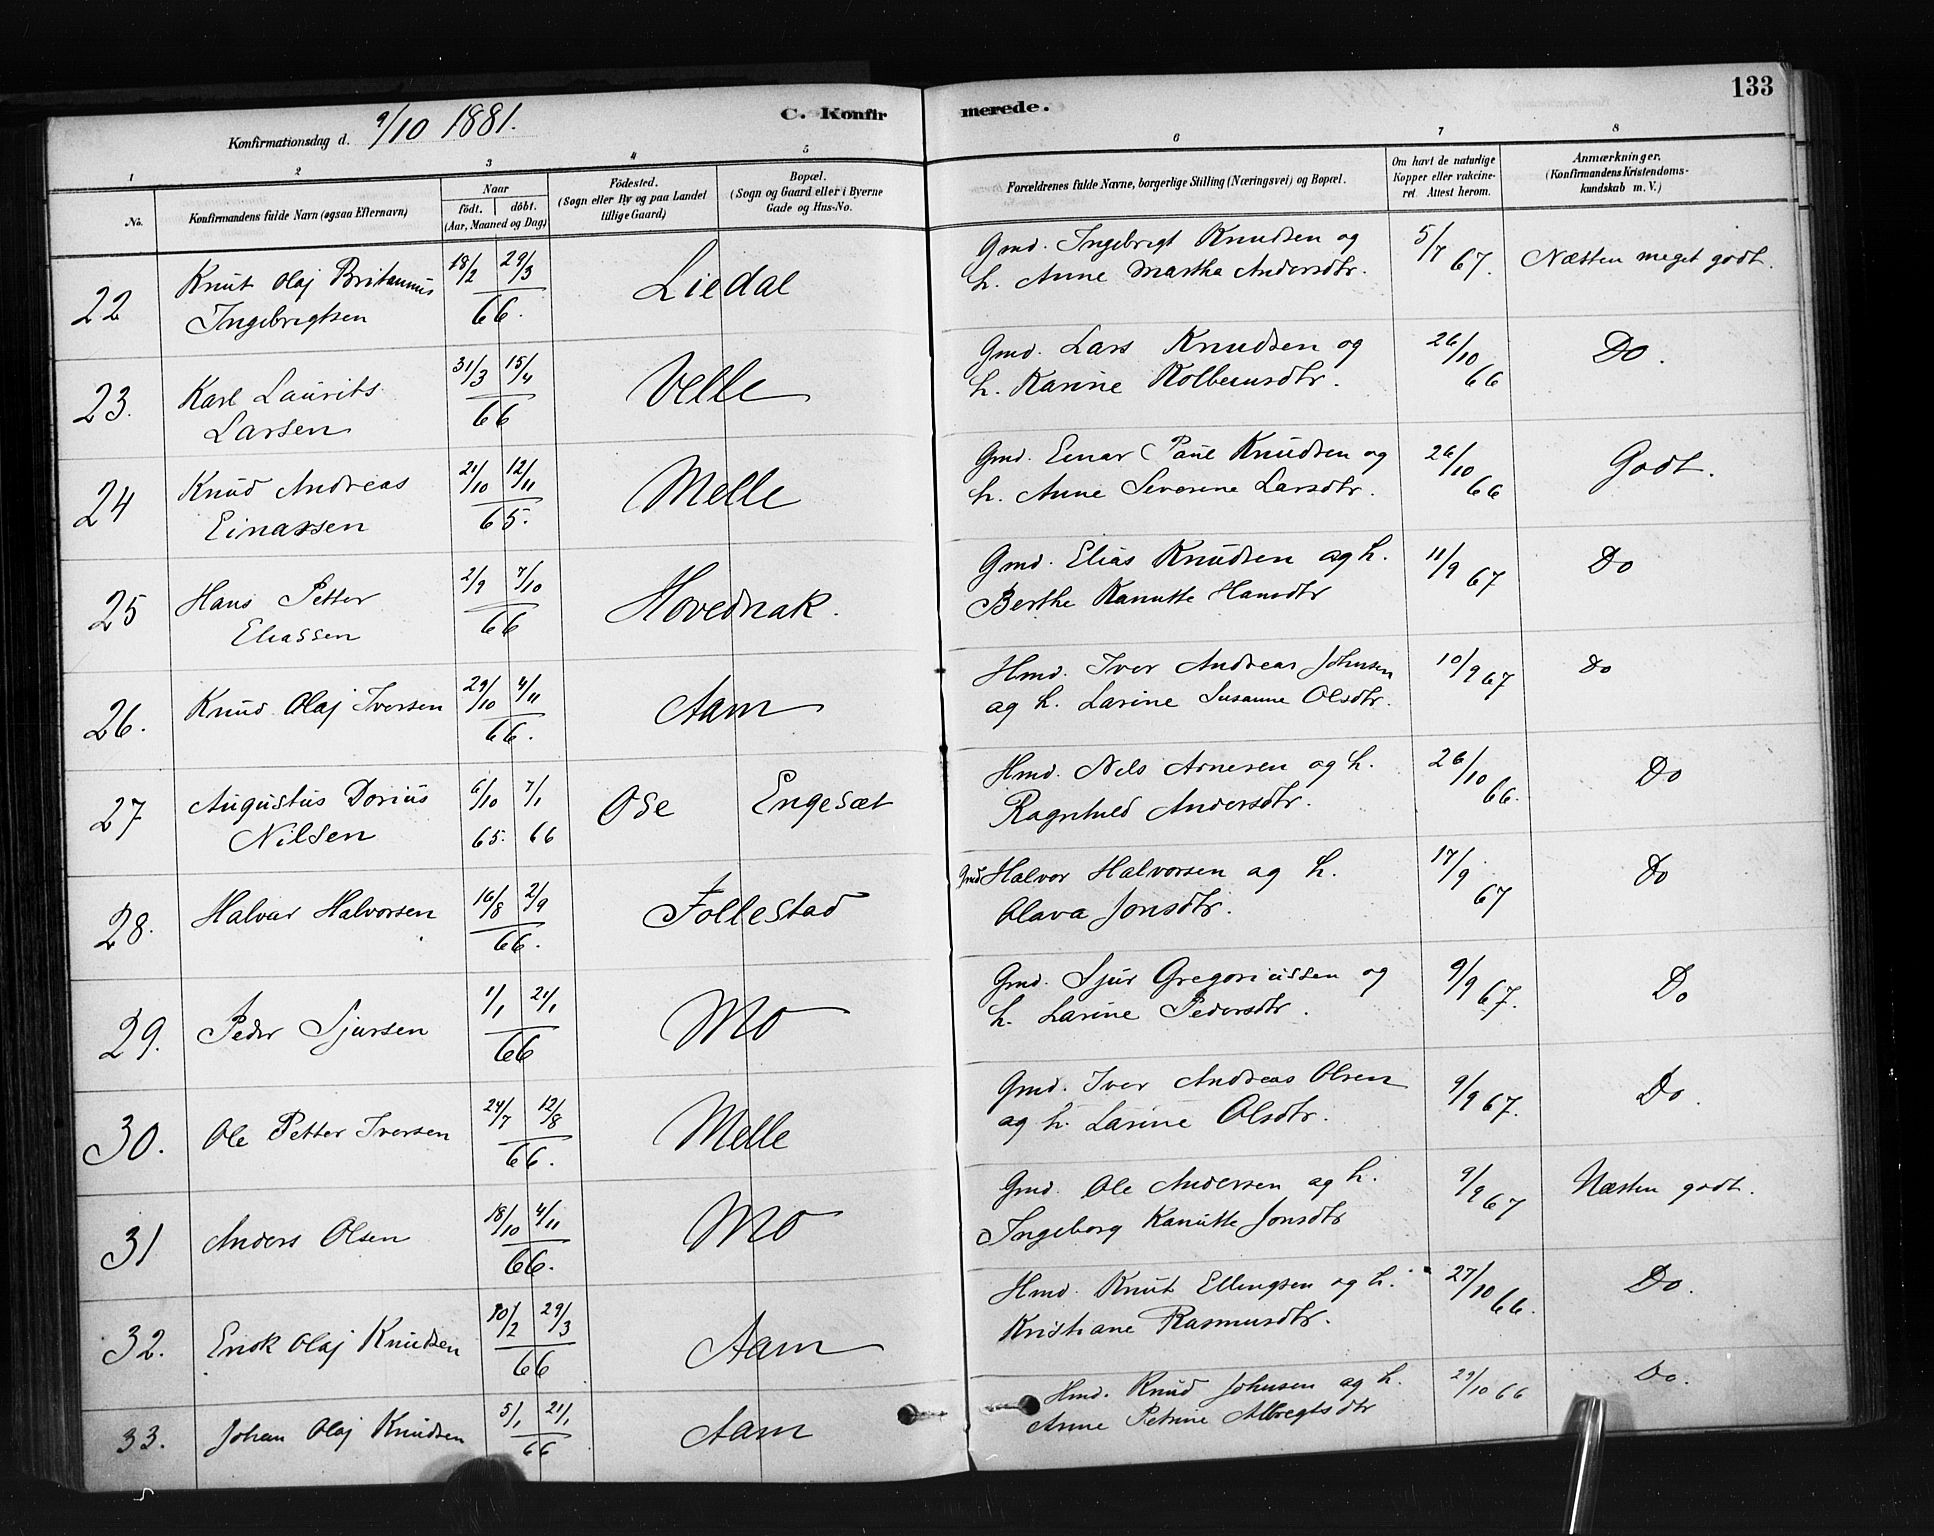 133
C. Konfirmerede.
Konfirmationsdag d. 9/10 1881.
1 2 3 4 5 6 7 8
No.
Konfirmandens fulde Navn (ogsaa Efternavn)
Naar
födt. | döbt.
(Aar, Maaned og Dag)
Födested.
(Sogn eller By og paa Landet
tillige Gaard)
Bopæl.
(Sogn og Gaard eller i Byerne
Gade og Hus-No.
Forældrenes fulde Navne, borgerlige Stilling (Næringsvei) og Bopæl.
Om havt de naturlige
Kopper eller vakcine-
ret. Attest herom.
Anmærkninger.
(Konfirmandens Kristendoms-
kundskab m. V.)
22 Knut Olaj Britannus 18/2 29/3 Liedal Gmd. Ingebrigt Knudsen og 5/7 67. Næsten meget godt.
Ingebrigtsen 66. h. Anne Martha Andersdtr.
23. Karl Laurits 31/3 15/4 Velle Gmd. Lars Knudsen og 26/10 66 Do.
Larsen 66 h. Karine Kolbeinsdtr.
24 Knud Andreas 21/10 12/11 Melle Gmd. Einar Paul Knudsen og 26/10 66 Godt.
Einarsen 65. h. Anne Severine Larsdtr.
25 Hans Petter 2/9 7/10 Hovednak. Gmd. Elias Knudsen og h. 11/9 67 Do
Eliassen 66 Berthe Kanutte Hansdtr
26. Knud Olaj Iversen 29/10 4/11 Aam Hmd. Iver Andreas Johnsen 10/9 67 Do
66. og h. Larine Susanne Olsdtr.
27 Augustus Dorius 6/10 7/1 Ose Engesæt Hmd. Nils Arnesen og h. 26/10 66. Do
Nilsen 65. 66 Ragnhild Andersdtr.
28. Halvar Halvorsen 16/8 2/9 Follestad Gmd Halvor Halvorsen og h. 17/9 67 Do
66. Olava Jonsdtr.
29. Peder Sjursen 1/1 21/1 Mo Gmd. Sjur Gregoriussen og 9/9 67. Do
66 h. Larine Pedersdtr.
30. Ole Petter Iversen 24/7 12/8 Melle Gmd. Iver Andreas Olsen 9/9 67. Do.
66. og h. Larine Olsdtr.
31 Anders Olsen 18/10 4/11 Mo Gmd. Ole Andersen og h. 9/9 67 Næsten godt.
66. Ingeborg Kanutte Jonsdtr
32. Erik Olaj Knudsen 10/2 29/3 Aam Hmd. Knut Ellingsen og h. 27/10 66. Do.
66 Kristiane Rasmusdtr.
33. Johan Olaj Knudsen 5/1 21/1 Aam Hmd. Knud Johnsen og h. 29/10 66 Do.
66 Anne Petrine Albregtsdtr